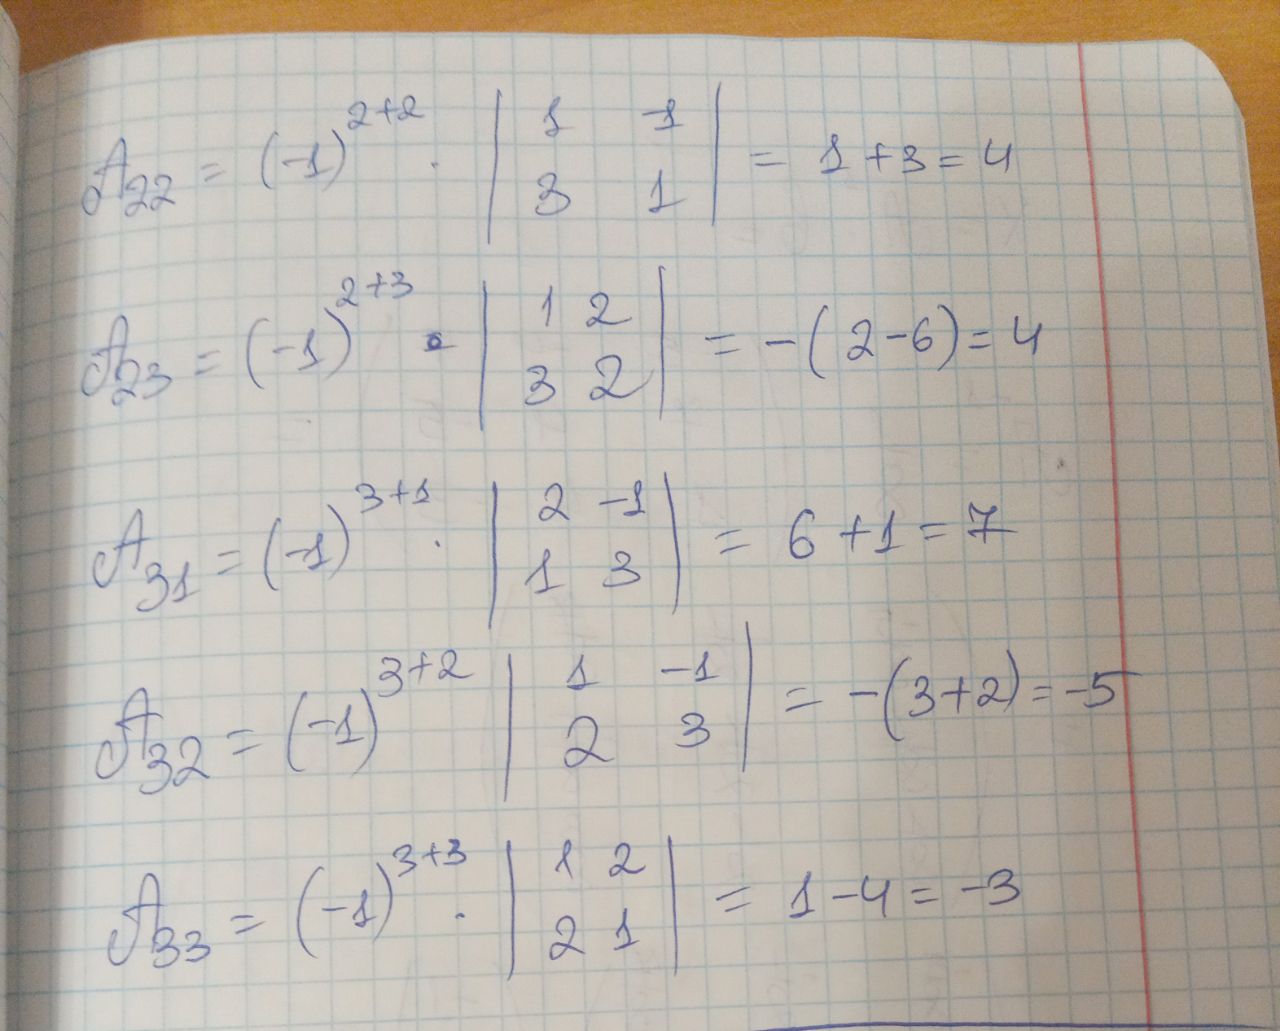 A₂₂ = (-1)²⁺² · | 1 -1 ; 3 1 | = 1 + 3 = 4
A₂₃ = (-1)²⁺³ · | 1 2 ; 3 2 | = -(2-6) = 4
A₃₁ = (-1)³⁺¹ · | 2 -1 ; 1 3 | = 6 + 1 = 7
A₃₂ = (-1)³⁺² | 1 -1 ; 2 3 | = -(3+2) = -5
A₃₃ = (-1)³⁺³ · | 1 2 ; 2 1 | = 1 - 4 = -3